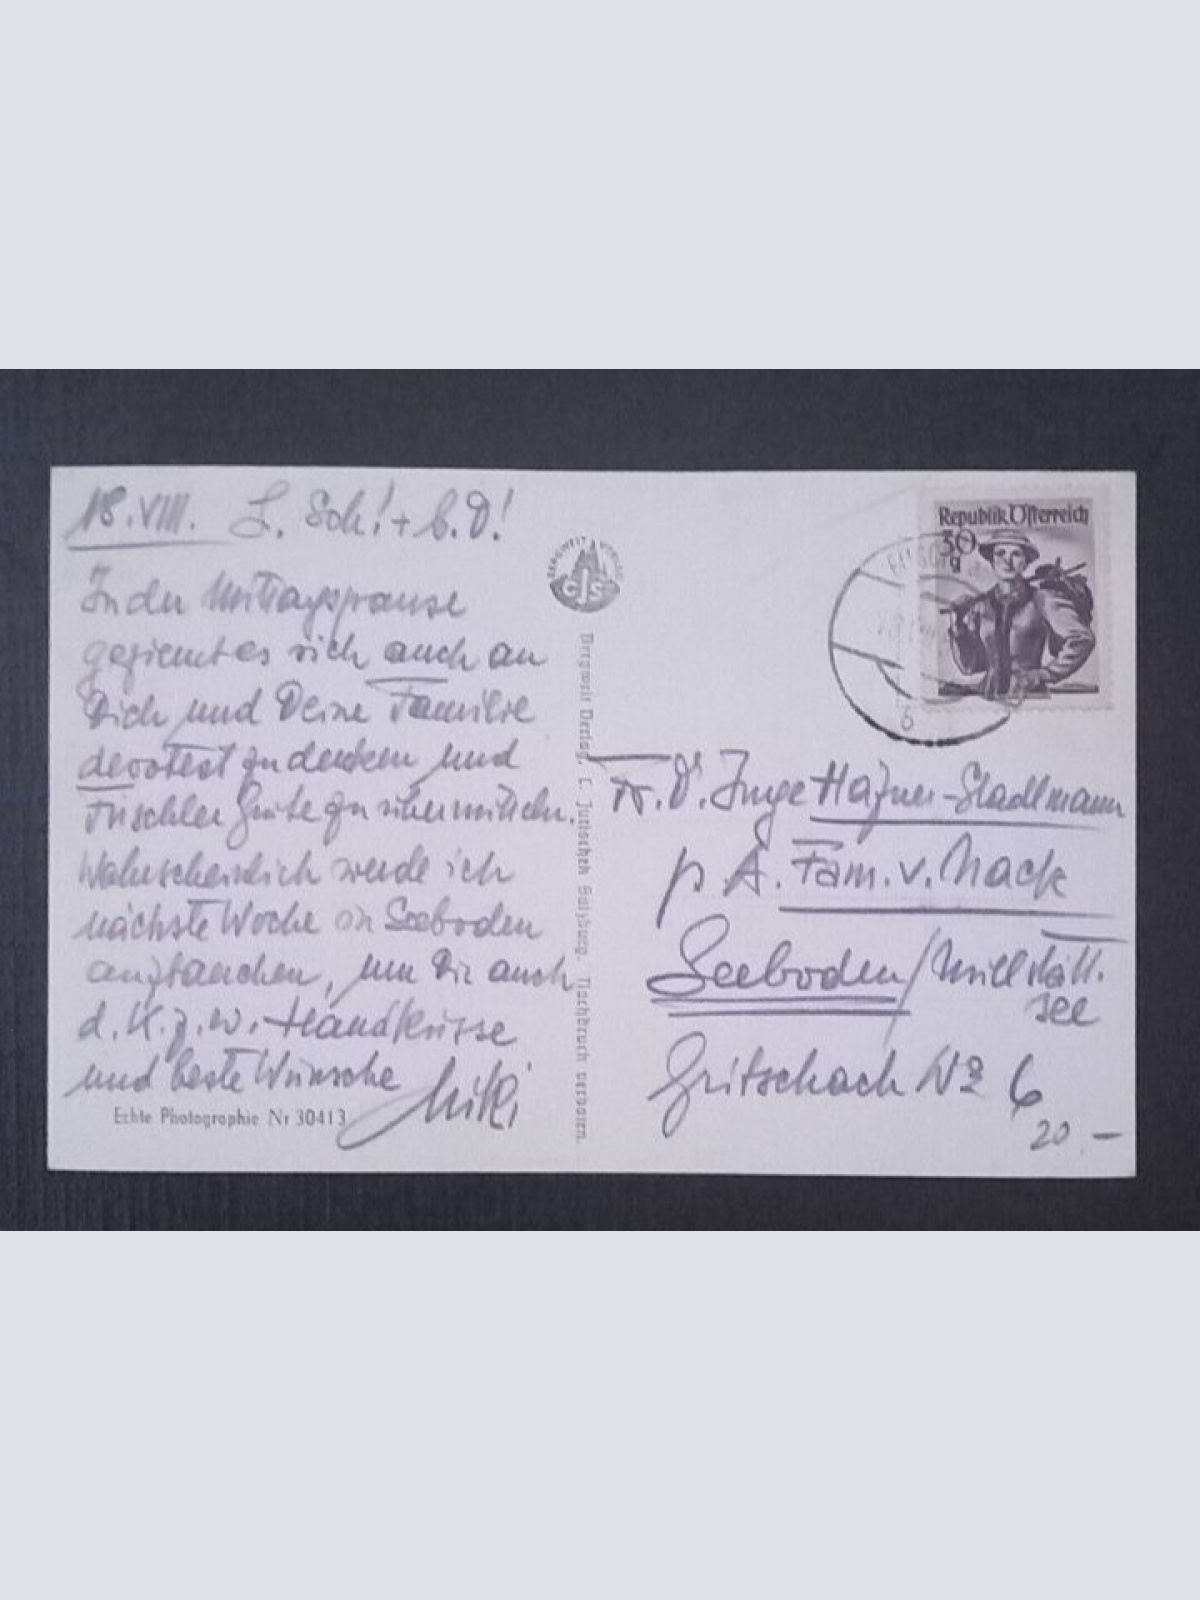 18.VIII. L. Sch! + b.D!
In der Mittagspause
geziemt es sich auch an
Dich und Deine Familie
devotest zu denken und
Tuschler Grüße zu übermitteln.
Wahrscheinlich werde ich
nächste Woche in Seeboden
auftauchen, um Dir auch
d. K. z. w. Handküsse
und beste Wünsche
Miki
Echte Photographie Nr 30413
BERGWELT VERLAG
CJS
Bergwelt Verlag, C. Jurischek Salzburg. Nachdruck verboten.
Republik Österreich
30 g
6
Fr. Dr. Inge Hafner-Stadlmann
p. A. Fam. v. Mack
Seeboden/Millstätt.
see
Gritschach No 6
20.-